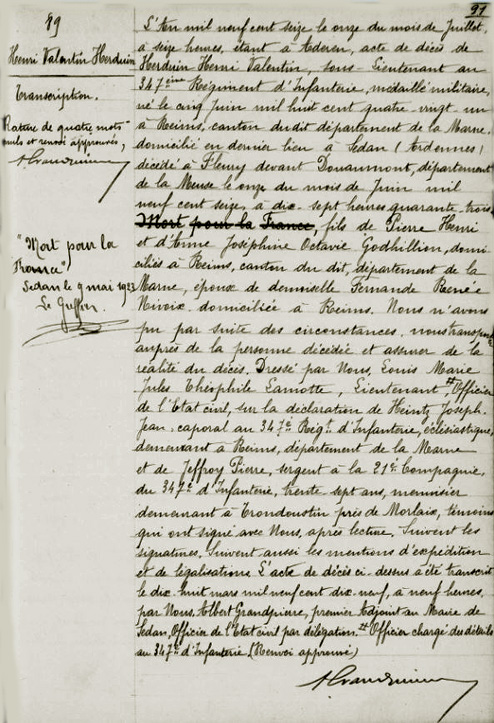 91
89
Henri Valentin Herduin
Transcription.
Rature de quatre mots
nuls et renvoi approuvés,
AGrandpierre
"Mort pour la
France"
Sedan le 9 mai 1923
Le Greffier.
L'An mil neuf cent seize le onze du mois de Juillet,
à seize heures, étant à Ederen, acte de décès de
Herduin Henri Valentin, sous Lieutenant au
347ème Régiment d'Infanterie, médaillé militaire,
né le cinq Juin mil huit cent quatre-vingt un
à Reims, canton dudit département de la Marne,
domicilié en dernier lieu à Sedan (Ardennes)
décédé à Fleury devant Douaumont, département
de la Meuse le onze du mois de Juin mil
neuf cent seize, à dix-sept heures quarante trois,
Mort pour la France, fils de Pierre Henri
et d'Anne Joséphine Octavie Godhillion, domi
ciliés à Reims, canton du dit, département de la
Marne, époux de demoiselle Fernande Renée
Nivoix domiciliée à Reims. Nous n'avons
pu par suite des circonstances, nous transporter
auprès de la personne décédée et assurer de la
réalité du décès. Dressé par Nous, Louis Marie
Jules Théophile Lamotte, Lieutenant, # Officier
de l'Etat civil, sur la déclaration de Heintz Joseph
Jean, caporal au 347e Régt. d'Infanterie, ecclésiastique,
demeurant à Reims, département de la Marne
et de Jeffroy Pierre, sergent à la 21e Compagnie,
du 347e d'Infanterie, trente sept ans, menuisier
demeurant à Trondoustin près de Morlaix, témoins
qui ont signé avec Nous, après lecture. Suivent les
signatures, Suivent aussi les mentions d'expédition
et de légalisations. L'acte de décès ci-dessus a été transcrit
le dix huit mars mil neuf cent dix-neuf, à neuf heures,
par Nous, Albert Grandpierre, premier Adjoint au Maire de
Sedan, Officier de l'Etat civil par délégation. # Officier chargé des détails
au 347e d'Infanterie. (Renvoi approuvé)
AGrandpierre